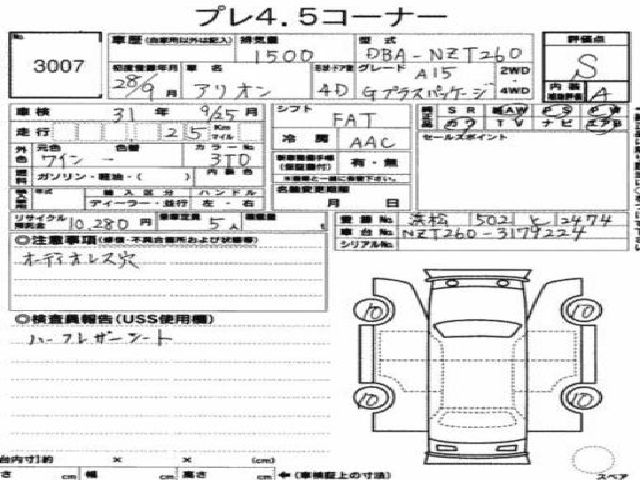 プレ4.5コーナー
No. 3007
車歴 (自家用以外は記入) 排気量 1500 型式 DBA-NZT260 評価点 S
初度登録年月 28/9月 車名 アリオン 形状・ドア数 4D グレード A15 Gプラスパッケージ 2WD・4WD 内装 A
車検 31年 9/25月 シフト FAT SR AW PS PW
走行 25 Km マイル 冷房 AAC TV ナビ
外色 元色 ワイン 色替 カラーNo. 3T0 有・無 セールスポイント
燃料 ガソリン・軽油・( ) 内装色
年式 輸入区分 ハンドル 名義変更期限
ディーラー・並行 左・右 月 日
リサイクル預託金 10,280円 乗車定員 5人 積載量 登録No. 浜松 502 と 2474
車台No. NZT260-3179224
シリアルNo.
◎注意事項 (修復・不具合箇所および状態等)
オーディオレス穴
◎検査員報告 (USS使用欄)
ハーフレザーシート
10 10
10 10
台内寸)約 × × (cm)
さ cm 幅 cm 高さ cm ←(車検証上の寸法) スペア